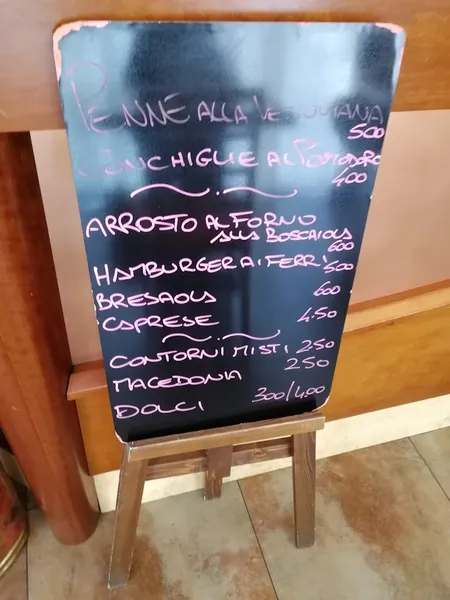 PENNE ALLA VESUVIANA
500
CONCHIGLIE AL POMODORO
400
ARROSTO AL FORNO
ALLA BOSCAIOLA
600
HAMBURGER AI FERRI
500
BRESAOLA 600
CAPRESE 4.50
CONTORNI MISTI 2.50
MACEDONIA 2.50
DOLCI 300/4.00